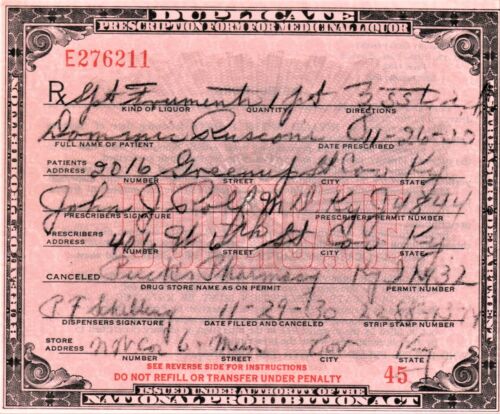 DUPLICATE
PRESCRIPTION FORM FOR MEDICINAL LIQUOR
E276211
Rx Spt Frumenti 1 pt 3ss
KIND OF LIQUOR QUANTITY DIRECTIONS
Dominic 11-26-30
FULL NAME OF PATIENT DATE PRESCRIBED
PATIENTS ADDRESS 2016 Greenup St Cov Ky
NUMBER STREET CITY STATE
John J MD Ky
PRESCRIBERS SIGNATURE PRESCRIBERS PERMIT NUMBER
PRESCRIBERS ADDRESS 401 W 6th St Cov Ky
NUMBER STREET CITY STATE
CANCELED Pharmacy Ky
DRUG STORE NAME AS ON PERMIT PERMIT NUMBER
11-29-30
DISPENSERS SIGNATURE DATE FILLED AND CANCELED STRIP STAMP NUMBER
STORE ADDRESS 6 Main Cov Ky
NUMBER STREET CITY STATE
SEE REVERSE SIDE FOR INSTRUCTIONS
DO NOT REFILL OR TRANSFER UNDER PENALTY 45
ISSUED UNDER AUTHORITY OF THE
NATIONAL PROHIBITION ACT